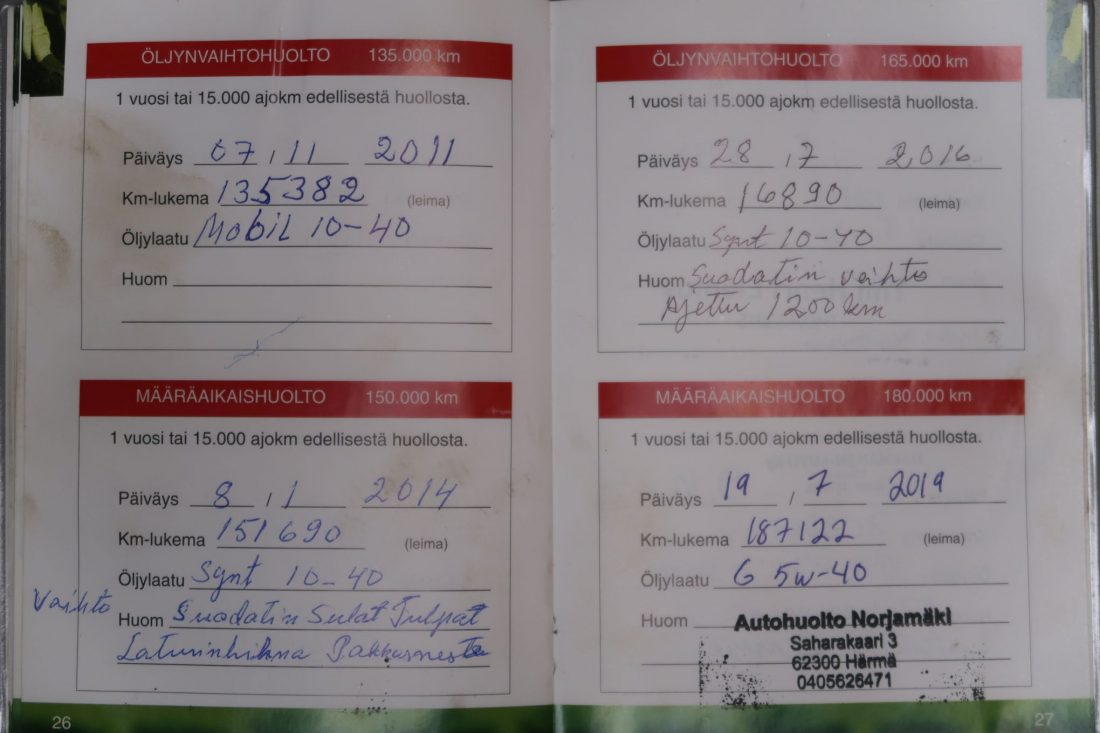 ÖLJYNVAIHTOHUOLTO 135.000 km
1 vuosi tai 15.000 ajokm edellisestä huollosta.
Päiväys 07 / 11 2011
Km-lukema 135382 (leima)
Öljylaatu Mobil 10-40
Huom
MÄÄRÄAIKAISHUOLTO 150.000 km
1 vuosi tai 15.000 ajokm edellisestä huollosta.
Päiväys 8 / 1 2014
Km-lukema 151690 (leima)
Öljylaatu Synt 10-40
Vaihto Huom Suodatin Sulat Tulpat
Laturinhihna Pakkasneste
26
ÖLJYNVAIHTOHUOLTO 165.000 km
1 vuosi tai 15.000 ajokm edellisestä huollosta.
Päiväys 28 / 7 2016
Km-lukema 16890 (leima)
Öljylaatu Synt 10-40
Huom Suodatin vaihto
Ajettu 1200 km
MÄÄRÄAIKAISHUOLTO 180.000 km
1 vuosi tai 15.000 ajokm edellisestä huollosta.
Päiväys 19 / 7 2019
Km-lukema 187122 (leima)
Öljylaatu G 5w-40
Huom
Autohuolto Norjamäki
Saharakaari 3
62300 Härmä
0405626471
27